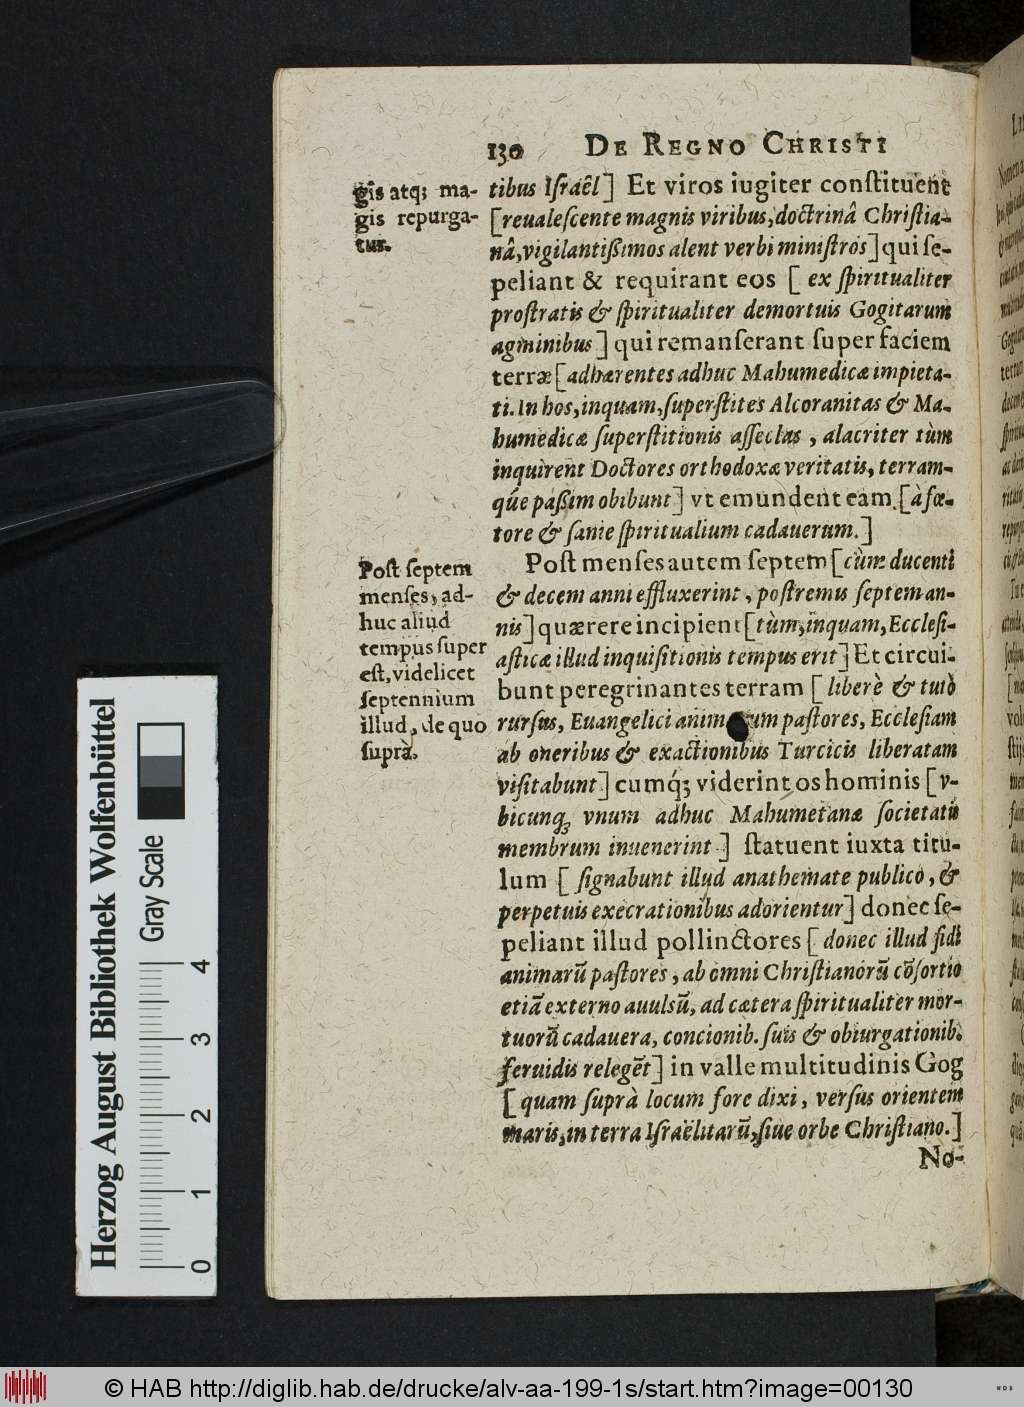 130 DE REGNO CHRISTI
gis atq; ma-
gis repurga-
tur.
tibus Iſraêl] Et viros iugiter conſtituent
[reualeſcente magnis viribus, doctrinâ Chriſtia-
nâ, vigilantißimos alent verbi miniſtros] qui ſe-
peliant & requirant eos [ ex ſpiritualiter
proſtratis & ſpiritualiter demortuis Gogitarum
agminibus ] qui remanſerant ſuper faciem
terræ [adhærentes adhuc Mahumedicæ impieta-
ti. In hos, inquam, ſuperſtites Alcoranitas & Ma-
humedicæ ſuperſtitionis aſſeclas, alacriter tùm
inquirent Doctores orthodoxæ veritatis, terram-
qúe paßim obibunt] vt emundent eam [à fœ-
tore & ſanie ſpiritualium cadauerum.]
Poſt ſeptem
menſes, ad-
huc aliud
tempus ſuper
eſt, videlicet
ſeptennium
illud, de quo
ſuprà.
Poſt menſes autem ſeptem [cùm ducenti
& decem anni effluxerint, poſtremus ſeptem an-
nis] quærere incipient [tùm, inquam, Eccleſi-
aſticæ illud inquiſitionis tempus erit] Et circui-
bunt peregrinantes terram [ liberè & tutò
rurſus, Euangelici anim um paſtores, Eccleſiam
ab oneribus & exactionibus Turcicis liberatam
viſitabunt] cumq́; viderint os hominis [v-
bicunq; vnum adhuc Mahumetanæ ſocietatis
membrum inuenerint ] ſtatuent iuxta titu-
lum [ ſignabunt illud anathemate publico, &
perpetuis execrationibus adorientur] donec ſe-
peliant illud pollinctores [ donec illud fidi
animarũ paſtores, ab omni Chriſtianorũ cõſortio
etiã externo auulsũ, ad cætera ſpiritualiter mor-
tuorũ cadauera, concionib. ſuis & obiurgationib.
feruidis relegẽt] in valle multitudinis Gog
[ quam ſuprà locum fore dixi, verſus orientem
maris, in terra Iſraëlitarũ, ſiue orbe Chriſtiano.]
No-
Herzog August Bibliothek Wolfenbüttel
Gray Scale
0 1 2 3 4
© HAB http://diglib.hab.de/drucke/alv-aa-199-1s/start.htm?image=00130